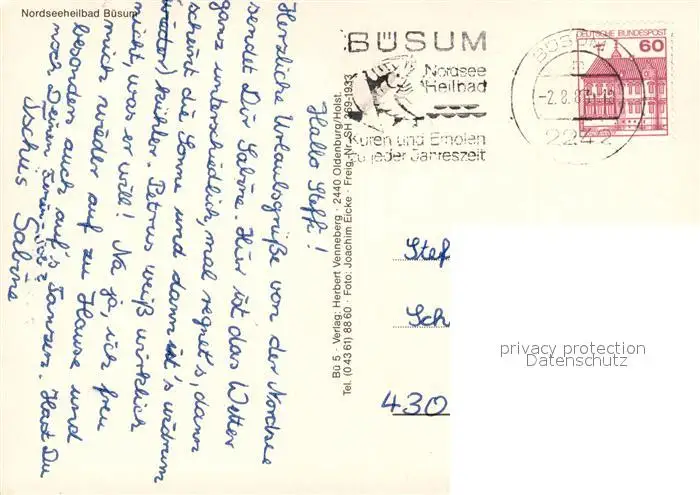 Nordseeheilbad Büsum
Hallo Steffi!
Herzliche Urlaubsgrüße von der Nordsee
sendet Dir Sabine. Hier ist das Wetter
ganz unterschiedlich, mal regnet's, dann
scheint die Sonne und dann ist's wiedrum
(wieder) kühler. Petrus weiß wirklich
nicht, was er will! Na ja, ich freu
mich wieder auf zu Hause und
besonders auch auf's Tanzen. Hast Du
noch Deinen
Tschüs Sabine
Bü 5 · Verlag: Herbert Venneberg · 2440 Oldenburg/Holst.
Tel. (0 43 61) 88 60 · Foto: Joachim Eicke · Freig. Nr. SH 369-1933
BÜSUM
Nordsee
Heilbad
Kuren und Erholen
zu jeder Jahreszeit
BÜSUM
-2.8.8
2242
DEUTSCHE BUNDESPOST
60
Stef
Sch
430
privacy protection
Datenschutz